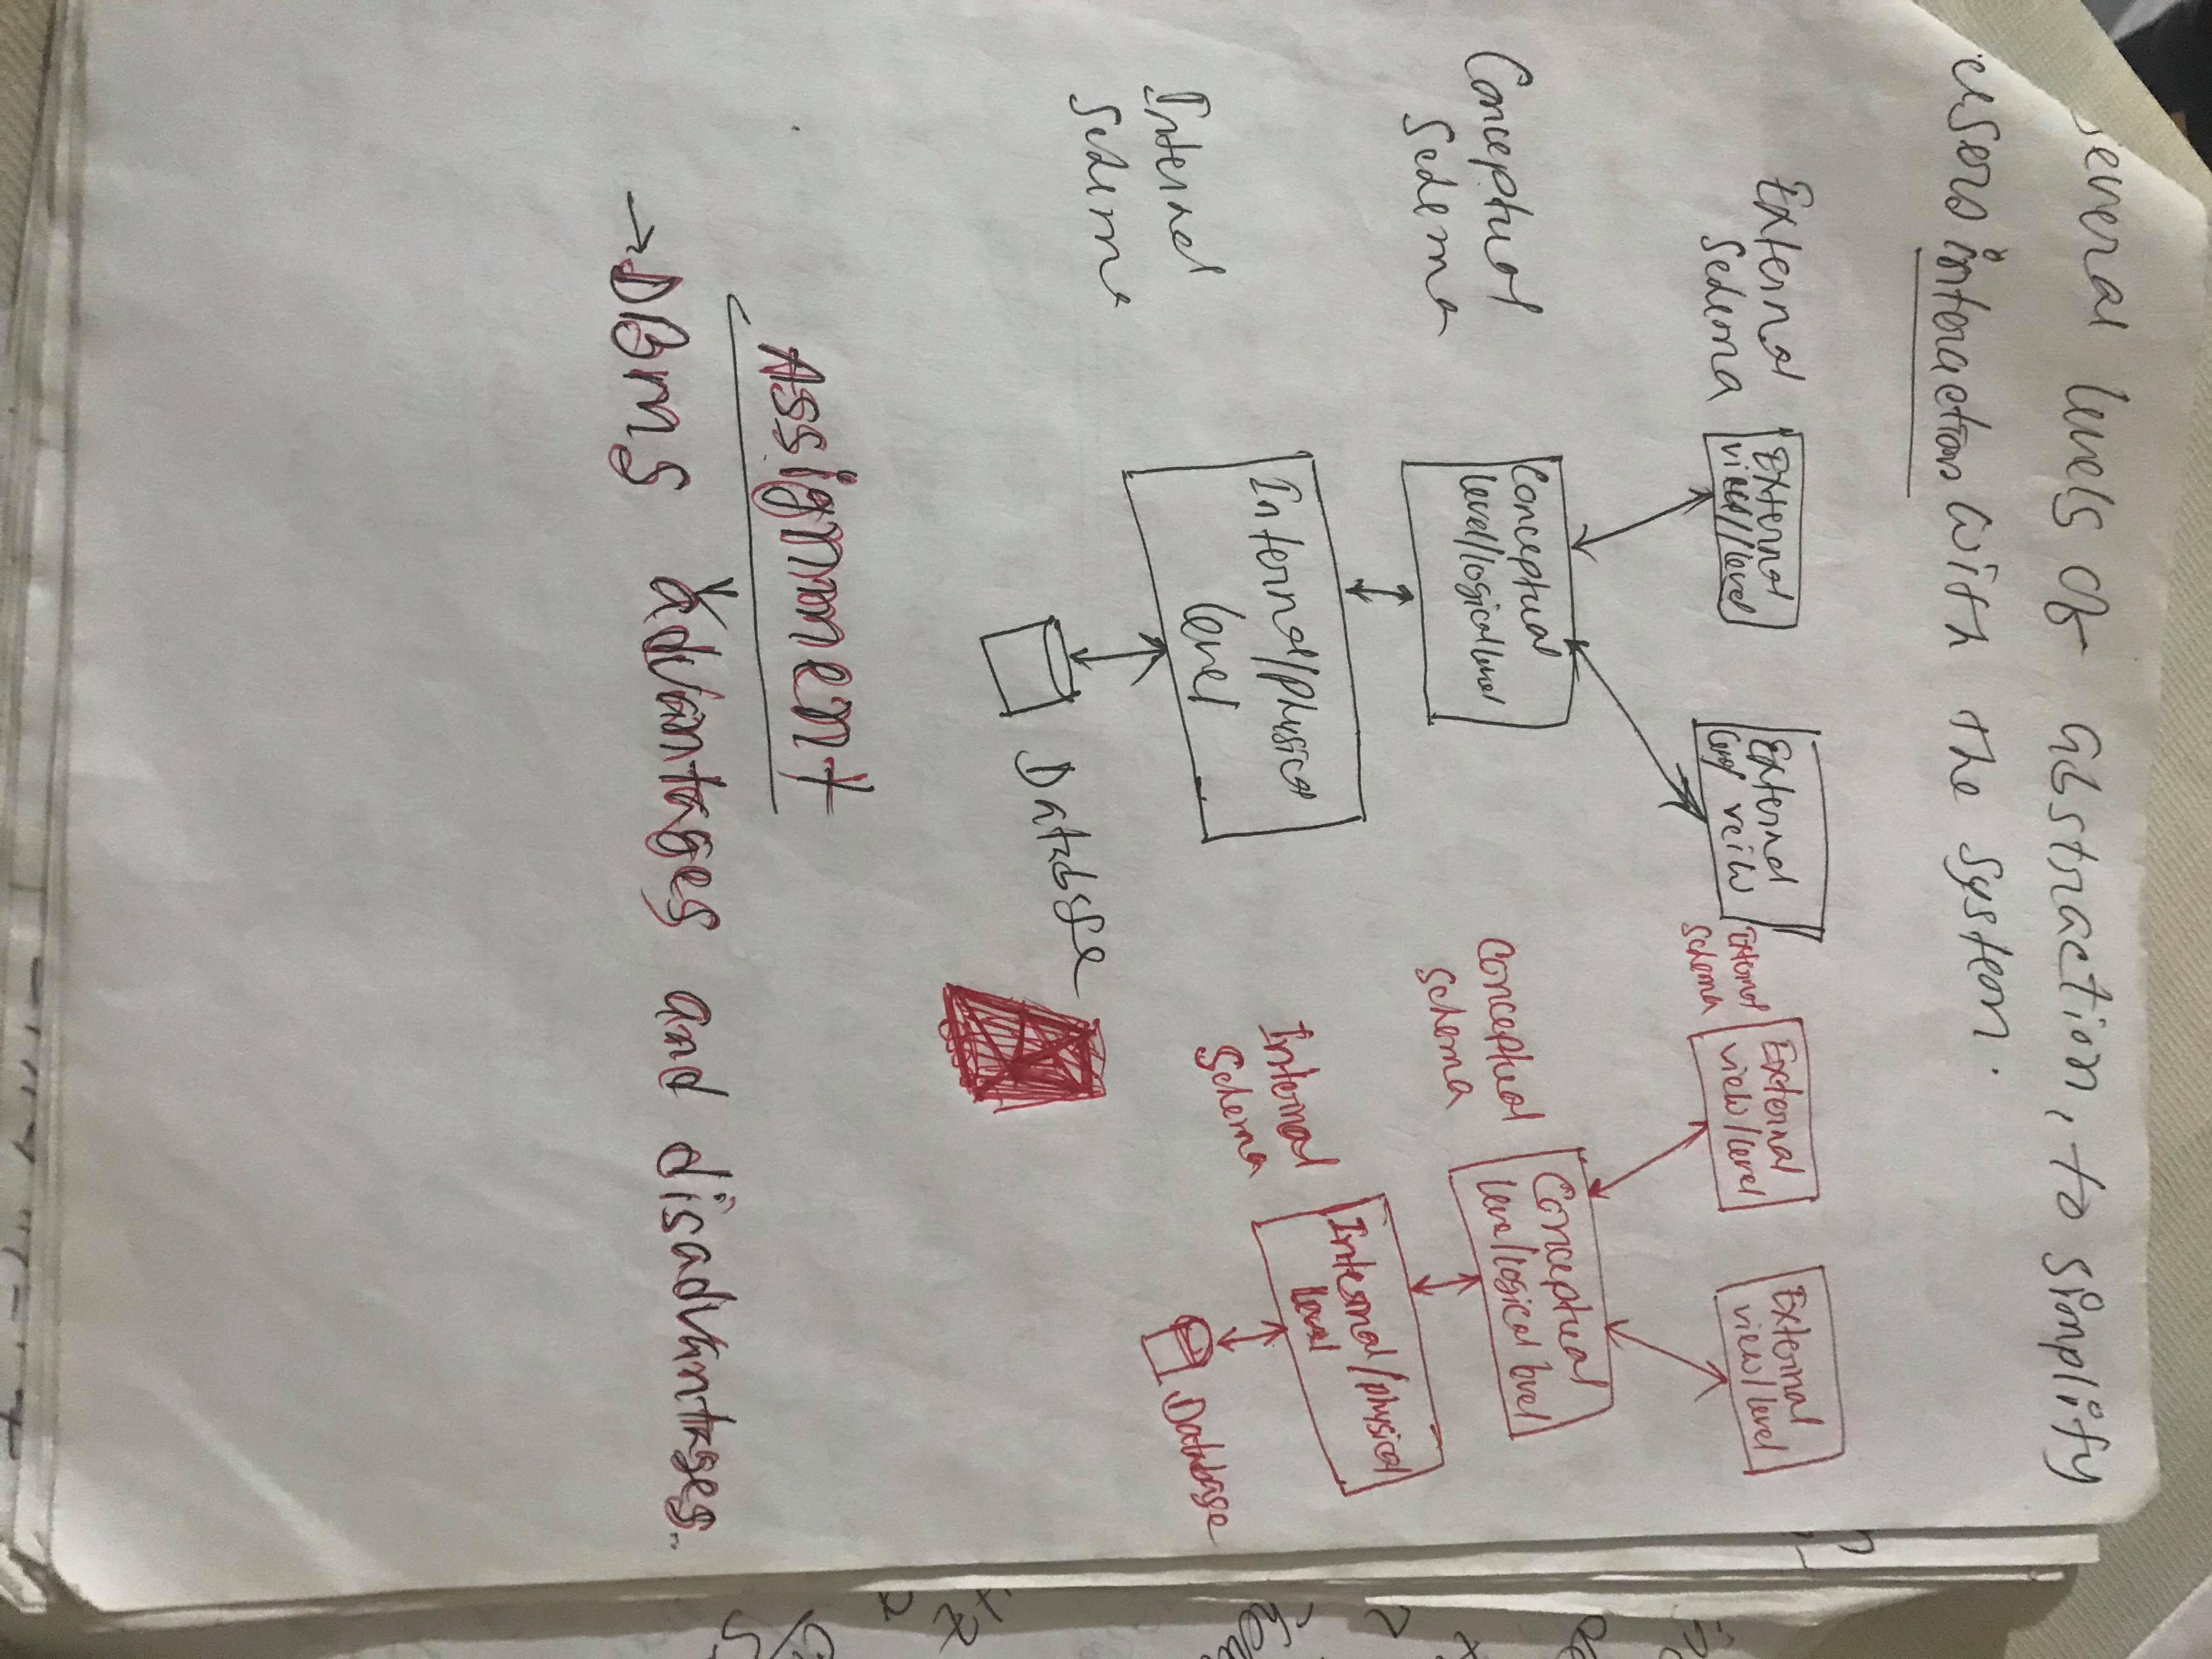 several levels of abstraction, to simplify
users interaction with the system.
External
Schema
External
view/level
External
level veiw
Conceptual
Schema
Conceptual
level/logical level
Internal/physical
level
Internal
Schema
Database
External
Schema
External
view/level
External
view/level
Conceptual
Schema
Conceptual
level/logical level
Internal
Schema
Internal/physical
level
Database
Assignment
→DBMS advantages and disadvantages.